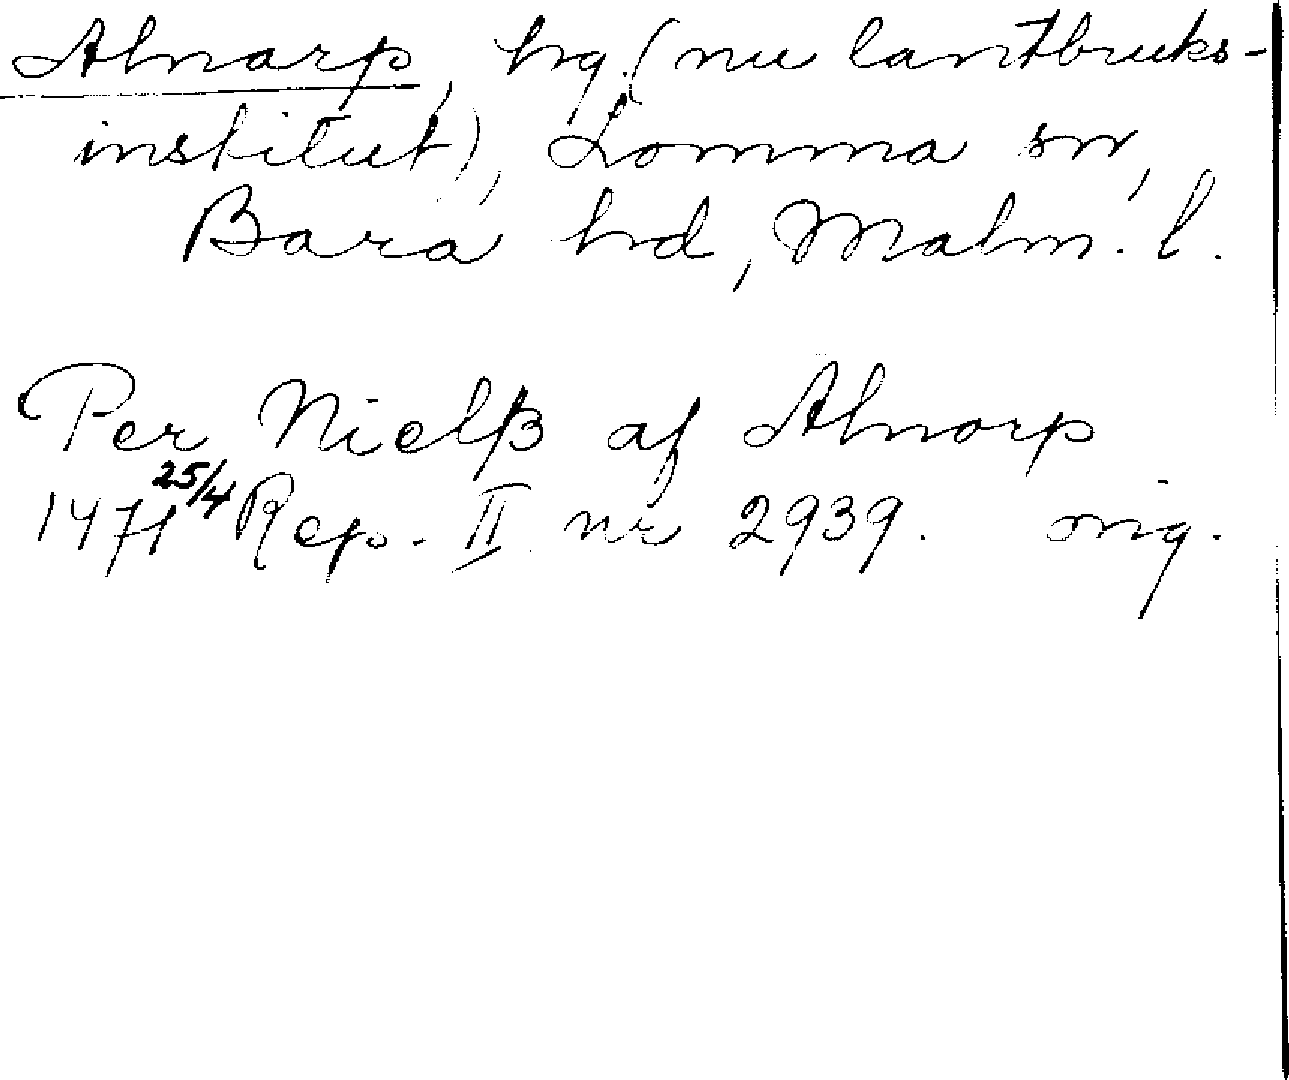 Alnarp, hg. (nu lantbruks-
institut), Lomma sn,
Bara hd, Malm. l.
Per Nielß af Alnorp
1471 25/4 Rep. II nr 2939. orig.